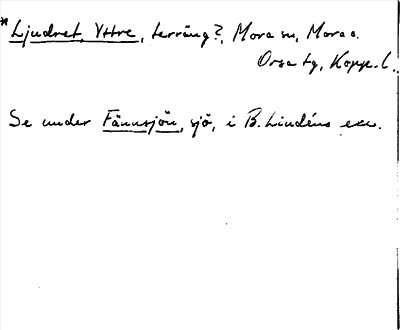 *Ljudret, Yttre, terräng?, Mora sn, Mora o.
Orsa tg, Kopp. l.
Se under Fännsjön, sjö, i B. Lindéns exc.